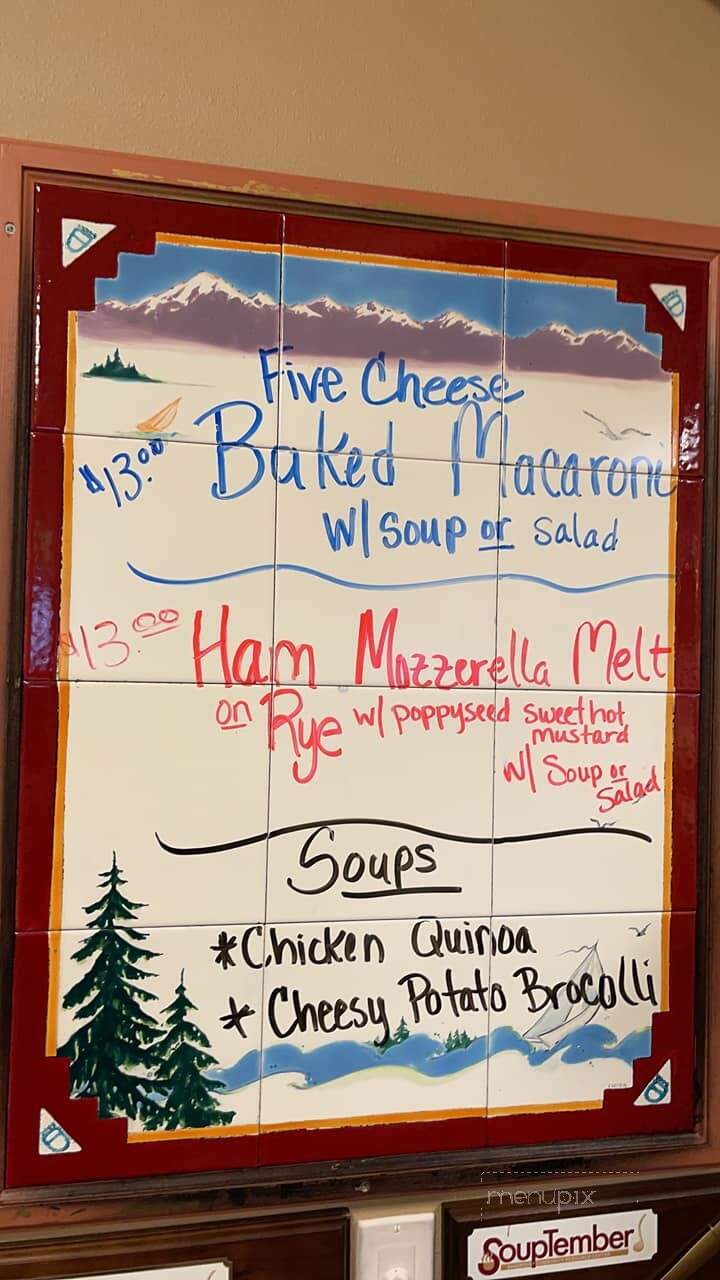 Five Cheese
$13.00 Baked Macaroni
w/ soup or salad
$13.00 Ham Mozzerella Melt
on Rye w/ poppyseed sweet hot
mustard
w/ Soup or
Salad
Soups
*Chicken Quinoa
* Cheesy Potato Brocolli
menupix
SoupTember